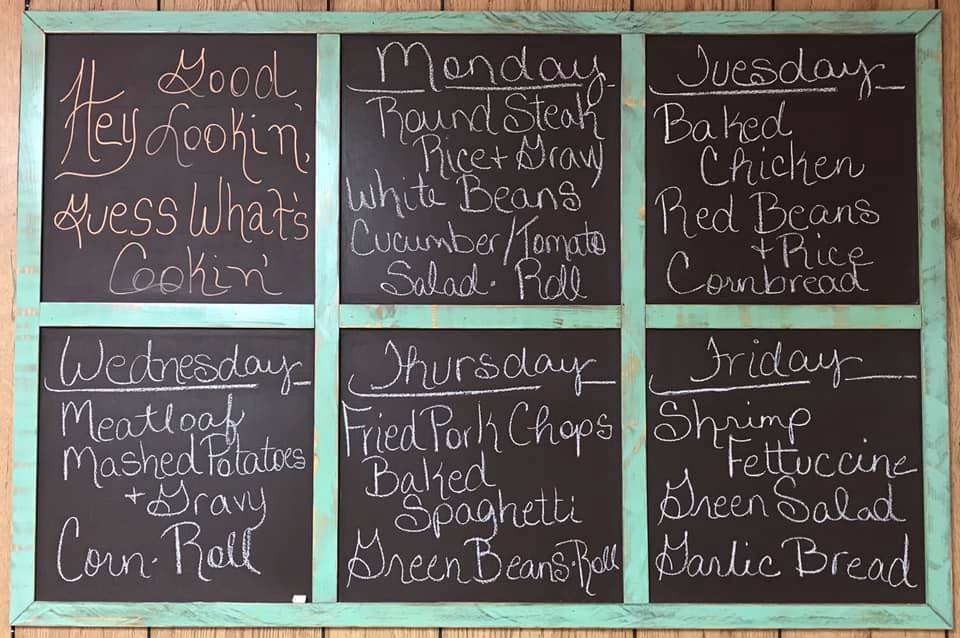 Hey Good
Lookin',
Guess What's
Cookin'
Monday
Round Steak
Rice + Gravy
White Beans
Cucumber/Tomato
Salad · Roll
Tuesday
Baked
Chicken
Red Beans
+ Rice
Cornbread
Wednesday
Meatloaf
Mashed Potatoes
+ Gravy
Corn · Roll
Thursday
Fried Pork Chops
Baked
Spaghetti
Green Beans · Roll
Friday
Shrimp
Fettuccine
Green Salad
Garlic Bread